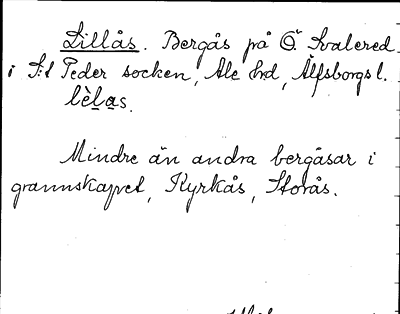 Lillås. Bergås på Ö Svalered
i S:t Peder socken, Ale hd, Älfsborgs l.
lèlas.
Mindre än andra bergåsar i
grannskapet, Kyrkås, Storås.